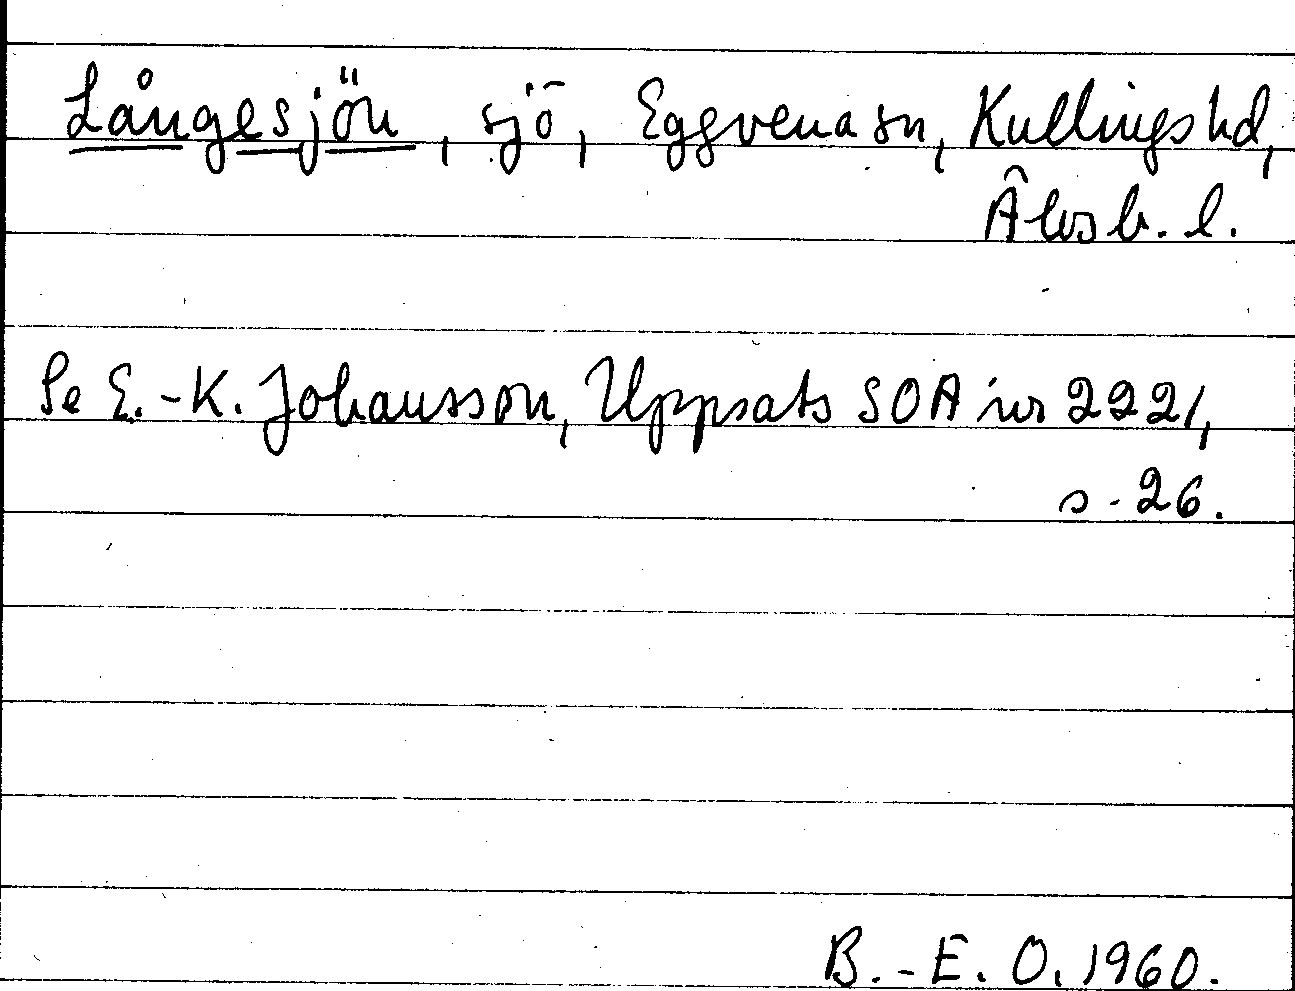 Långesjön, sjö, Eggvena sn, Kullings hd,
Älvsb. l.
Se E.-K. Johansson, Uppsats SOA nr 2221,
s. 26.
B.-E. O. 1960.